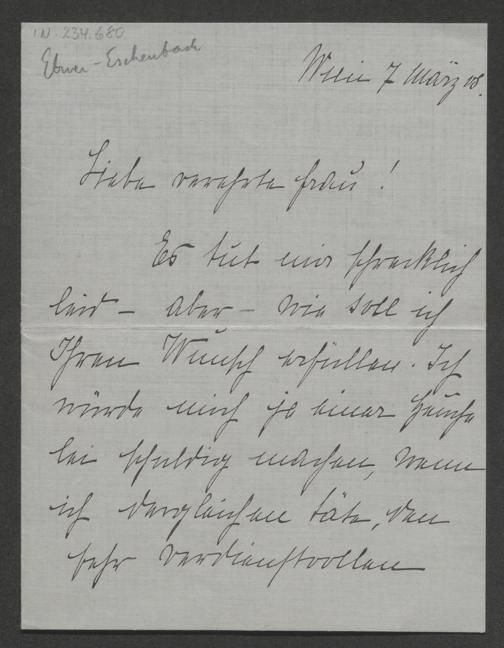 IN. 234.680
Ebner-Eschenbach
Wien 7 März 08.
Liebe verehrte Frau!
Es tut mir schrecklich
leid – aber – wie soll ich
Ihren Wunsch erfüllen. Ich
würde mich ja einer Heuche
lei schuldig machen, wenn
ich dergleichen täte, den
sehr verdienstvollen